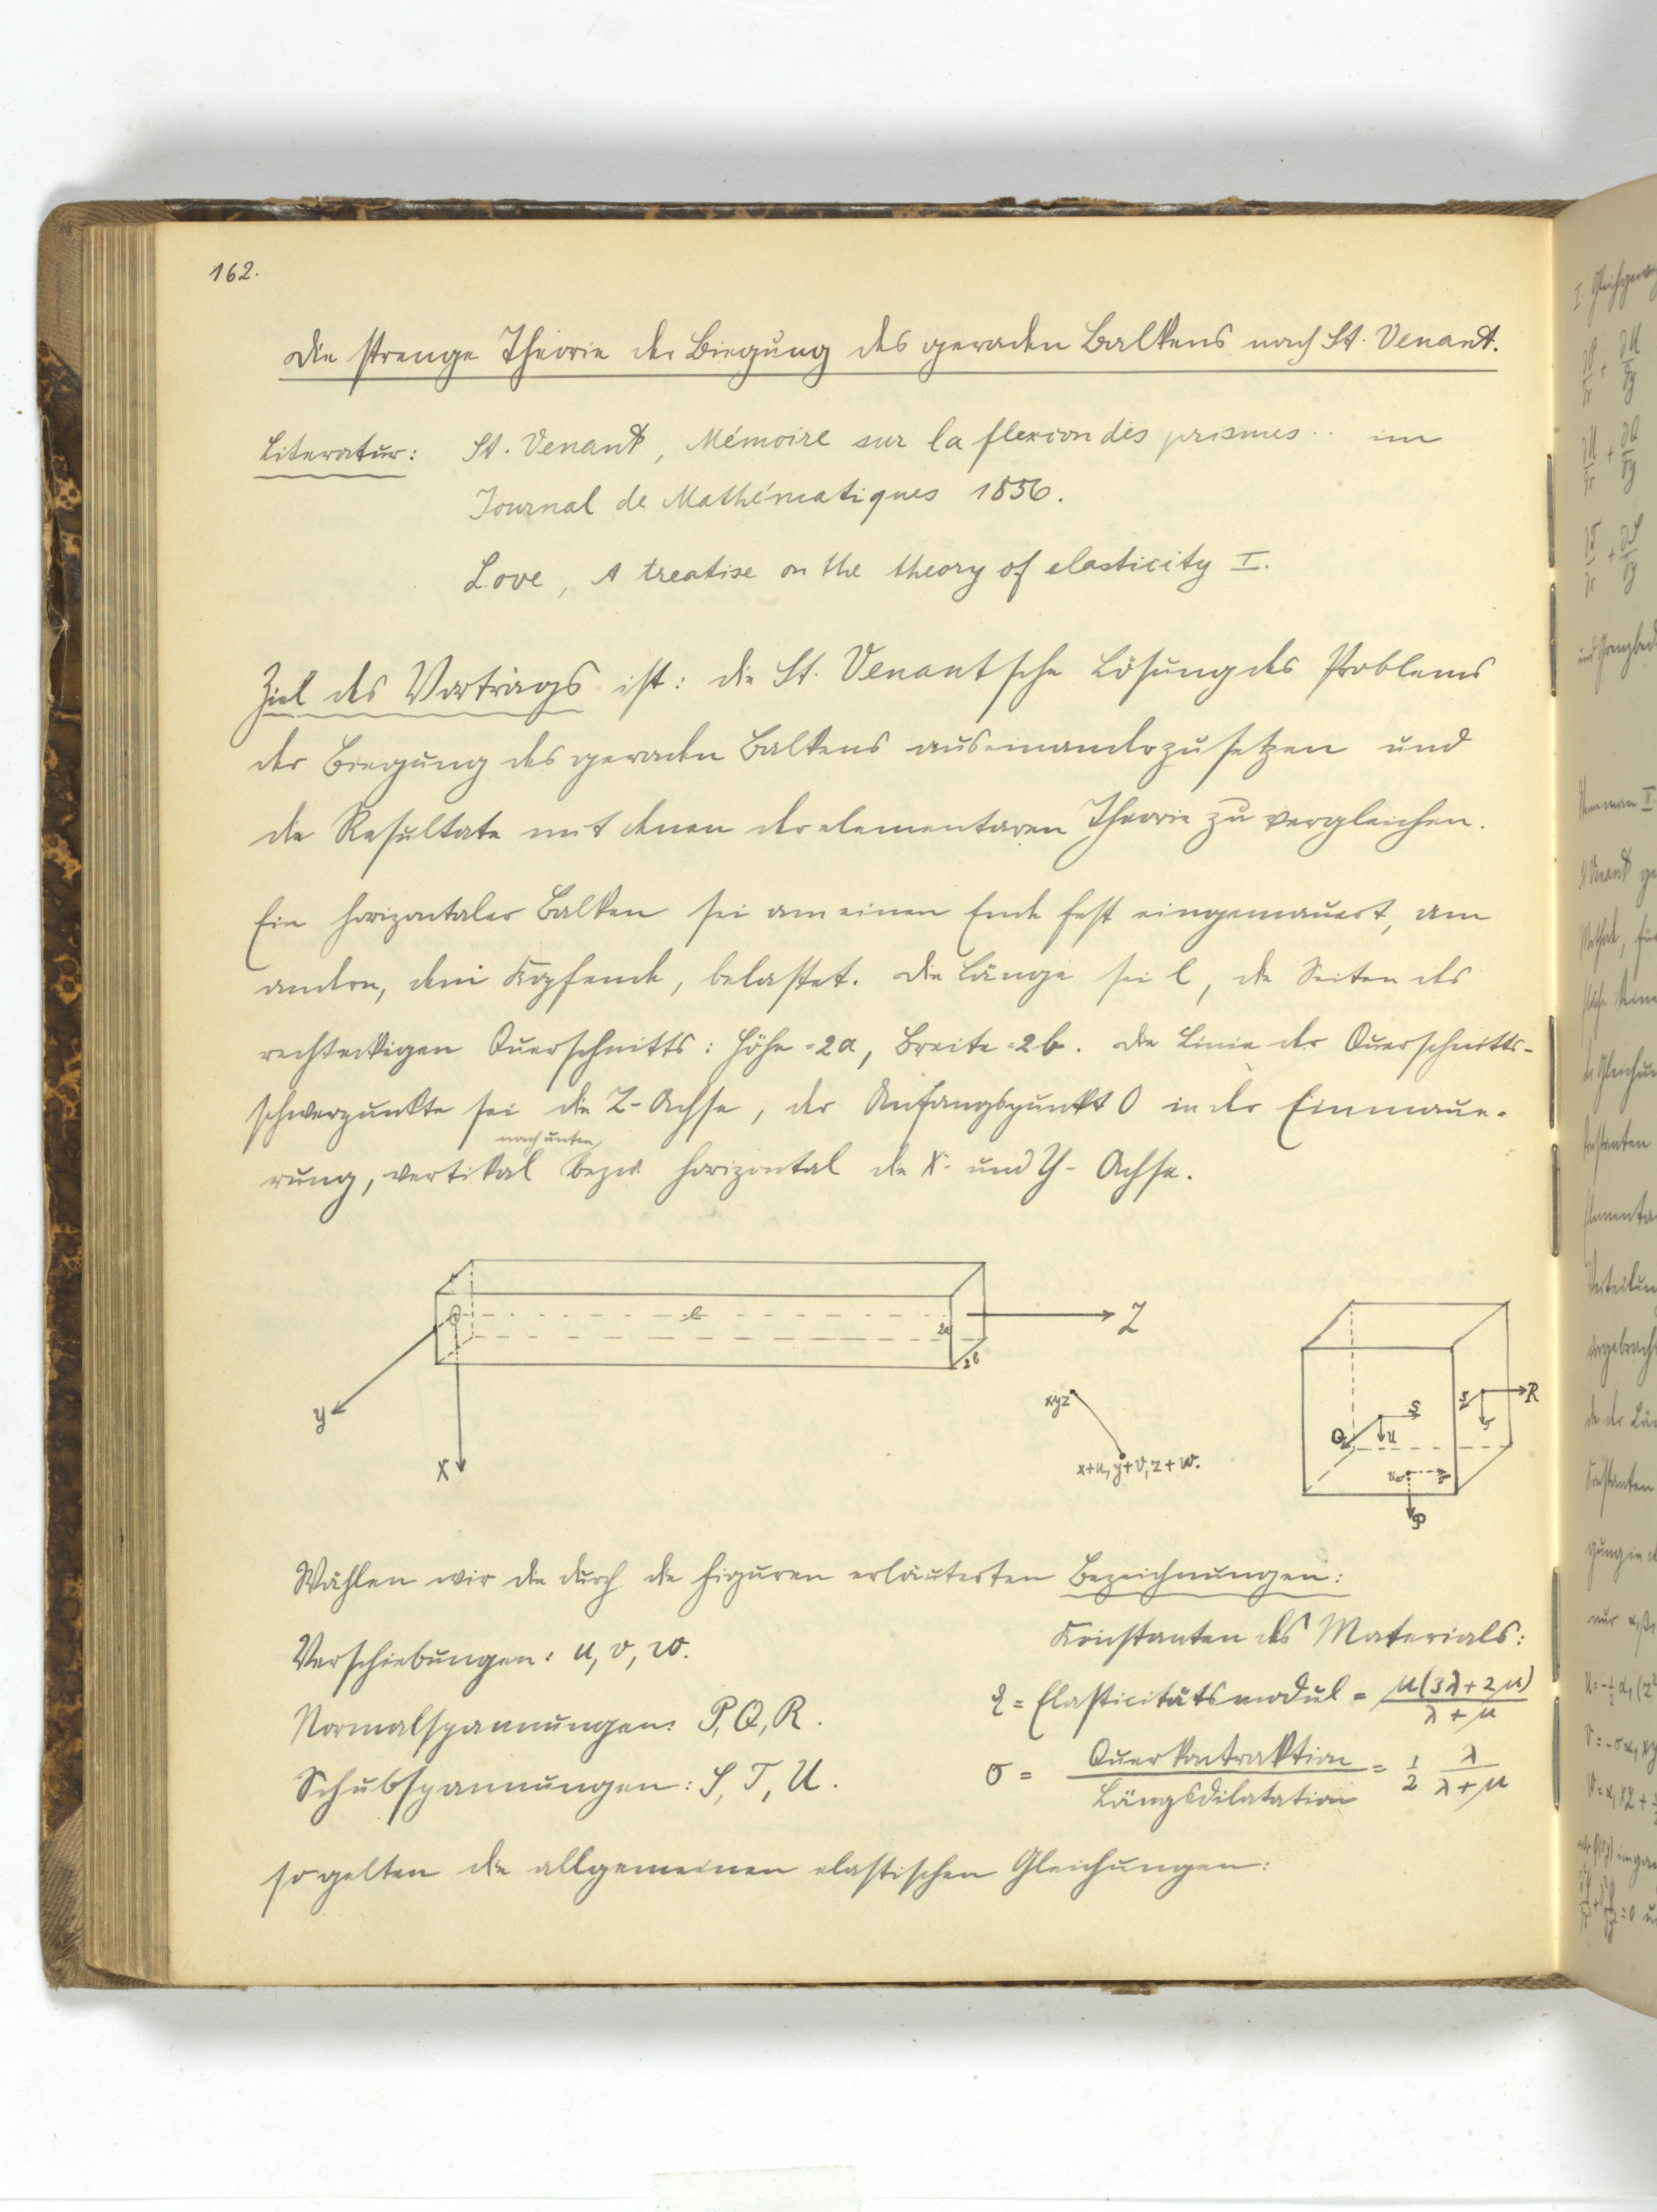 162.
Die strenge Theorie der Biegung des geraden Balkens nach St. Venant.
Literatur: St. Venant, Mémoire sur la flexion des prismes .. im
Journal de Mathématiques 1856.
Love, A treatise on the theory of elasticity I.
Ziel des Vortrags ist: die St. Venantsche Lösung des Problems
der Biegung des geraden Balkens auseinanderzusetzen und
die Resultate mit denen der elementaren Theorie zu vergleichen.
Ein horizontaler Balken sei am einen Ende fest eingemauert, am
andern, dem Kopfende, belastet. Die Länge sei l, die Seiten des
rechteckigen Querschnitts: Höhe = 2a, Breite = 2b. Die Linie der Querschnitts-
schwerpunkte sei die Z-Achse, der Anfangspunkt O in der Einmaue-
nach unten
rung, vertikal bezw. horizontal die X- und Y-Achse.
O l 2a 2b Z
y
X
xyz
x+u, y+v, z+w.
R
S
Q U
P
Wählen wir die durch die Figuren erläuterten Bezeichnungen:
Konstanten des Materials:
Verschiebungen: u, v, w.
= Elasticitätsmodul = μ(3λ+2μ) / λ+μ
Normalspannungen: P, Q, R.
σ = Querkontraktion / Längsdilatation = 1/2 λ / λ+μ
Schubspannungen: S, T, U.
so gelten die allgemeinen elastischen Gleichungen: